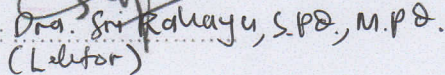 Dra. Sri Rahayu, S.Pd., M.Pd.
(Lektor)